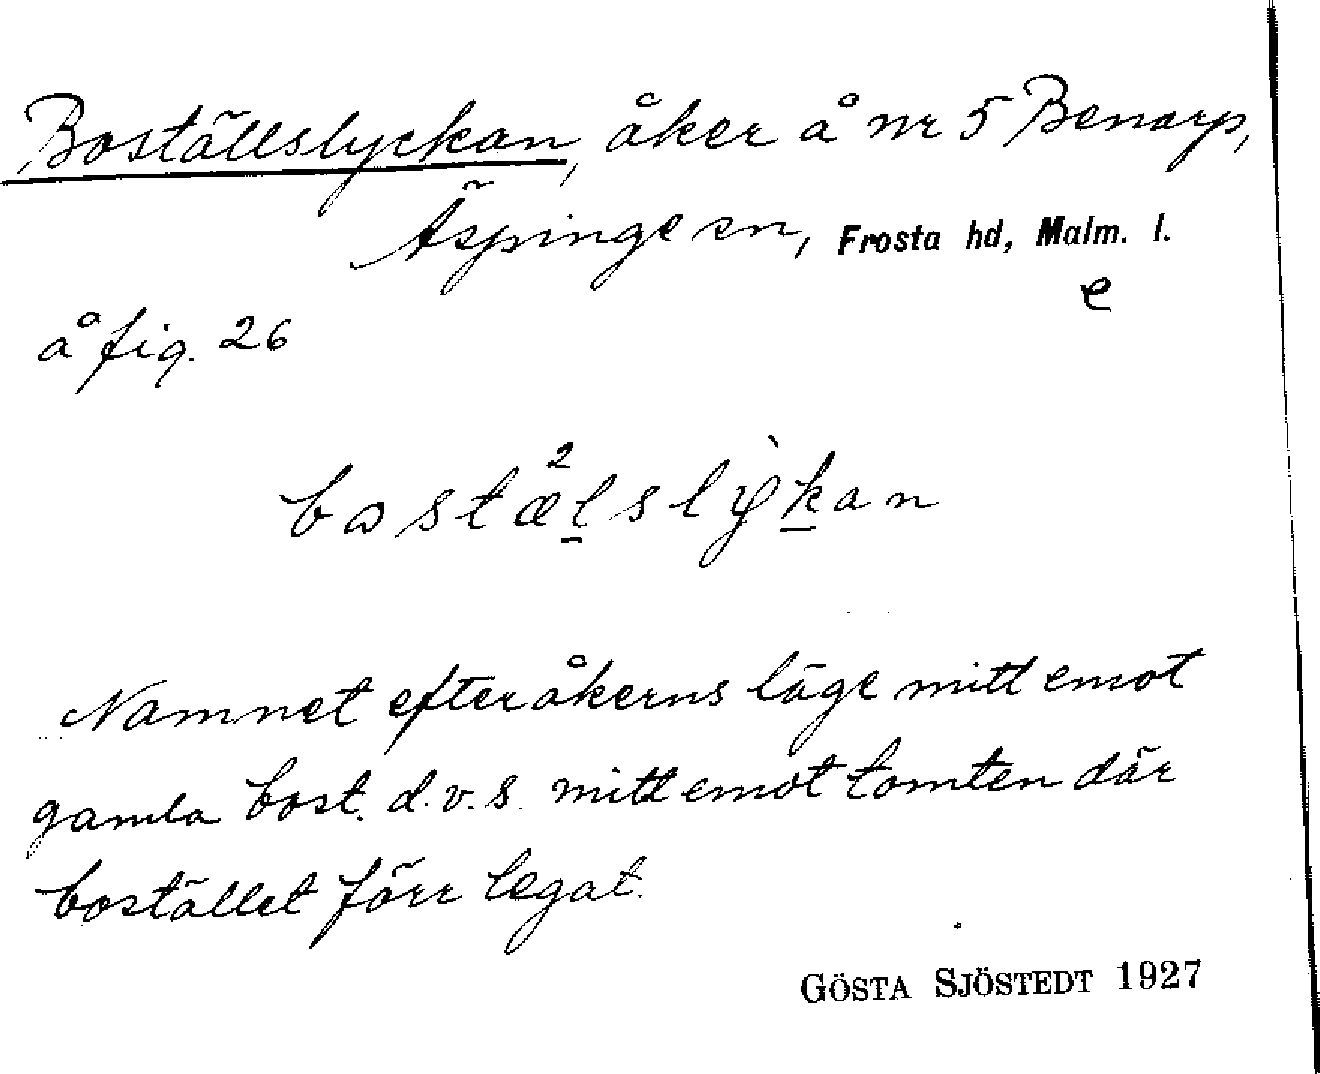 Boställslyckan, åker å nr 5 Benarp,
Äspinge sn, Frosta hd, Malm. l.
e
å fig. 26
bostæ²lslỳkan
Namnet efter åkerns läge mitt emot
gamla bost. d.v.s. mitt emot tomten där
bostället förr legat.
GÖSTA SJÖSTEDT 1927